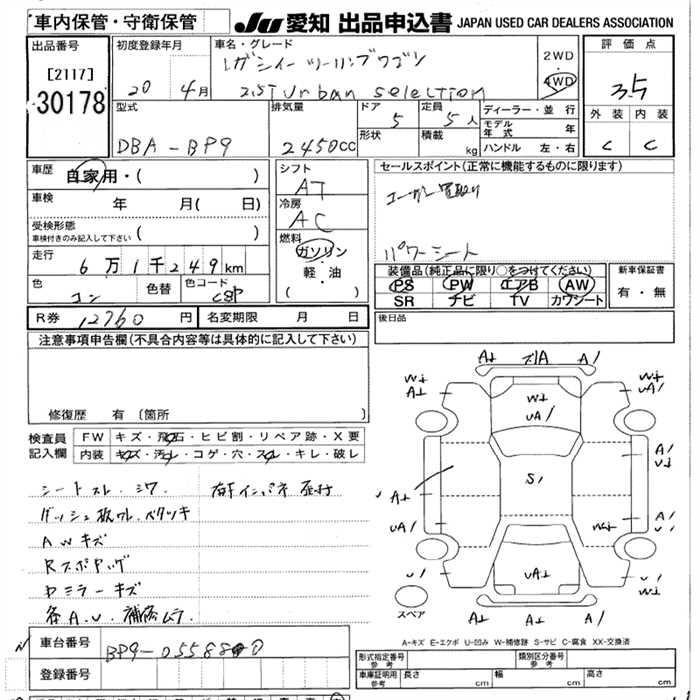 車内保管・守衛保管
JU 愛知 出品申込書 JAPAN USED CAR DEALERS ASSOCIATION
出品番号
[2117]
30178
初度登録年月
20 4月
車名・グレード
レガシィツーリングワゴン
2.5i urban selection
2WD
4WD
評価点
3.5
外装 内装
C C
型式
DBA-BP9
排気量
2450cc
ドア
5
形状
定員
5人
積載
kg
ディーラー・並行
モデル年式 年
ハンドル 左・右
車歴
自家用・( )
車検
年 月( 日)
受検形態
車検付きのみ記入して下さい ( )
走行
6万1千249km
色
コン
色替
色コード
C8P
シフト
AT
冷房
AC
燃料
ガソリン
軽・油
( )
セールスポイント(正常に機能するものに限ります)
ユーザー買取り
パワーシート
装備品(純正品に限り○をつけてください)
PS PW エアB AW
SR ナビ TV カワシート
新車保証書
有・無
R券 12760 円
名変期限 月 日
後日品
注意事項申告欄(不具合内容等は具体的に記入して下さい)
修復歴 有 〔箇所 〕
検査員記入欄
FW キズ・飛石・ヒビ割・リペア跡・X要
内装 キズ・汚レ・コゲ・穴・スレ・キレ・破レ
シートスレ・シワ
ダッシュ板ワレ・ベタツキ
AWキズ
Rスポハゲ
Dミラーキズ
各A.U.補修ムラ
A↓ ズ/A A/
W↓
A↓
W↓
UA/
W↓
UA/
A/
U↓
S/
A↓
UA/
A/
U/
W↓
U/
UA↓
U/
A↓ A↓ A/
スペア
A-キズ E-エクボ U-凹み W-補修跡 S-サビ C-腐食 XX-交換済
車台番号
BP9-055880
登録番号
形式指定番号
参考
類別区分番号
参考
車庫証明用
参考
長さ cm
幅 cm
高さ cm